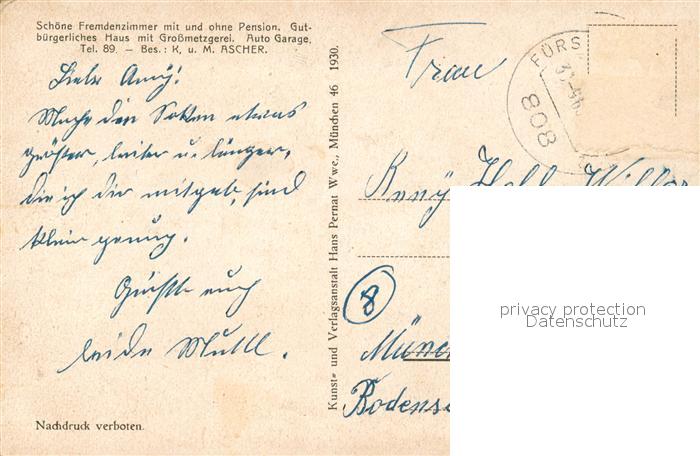 Schöne Fremdenzimmer mit und ohne Pension. Gut-
bürgerliches Haus mit Großmetzgerei. Auto Garage.
Tel. 89. — Bes.: K. u. M. ASCHER.
Liebe Anny!
Mache die Socken etwas
größer, weiter u. länger,
die ich dir mitgab, sind
klein genug.
Grüßle euch
beide Muttl.
Nachdruck verboten.
Kunst= und Verlagsanstalt Hans Pernat Wwe., München 46 1930.
FÜRS
808
Frau
8
Münc
Bodense
privacy protection
Datenschutz